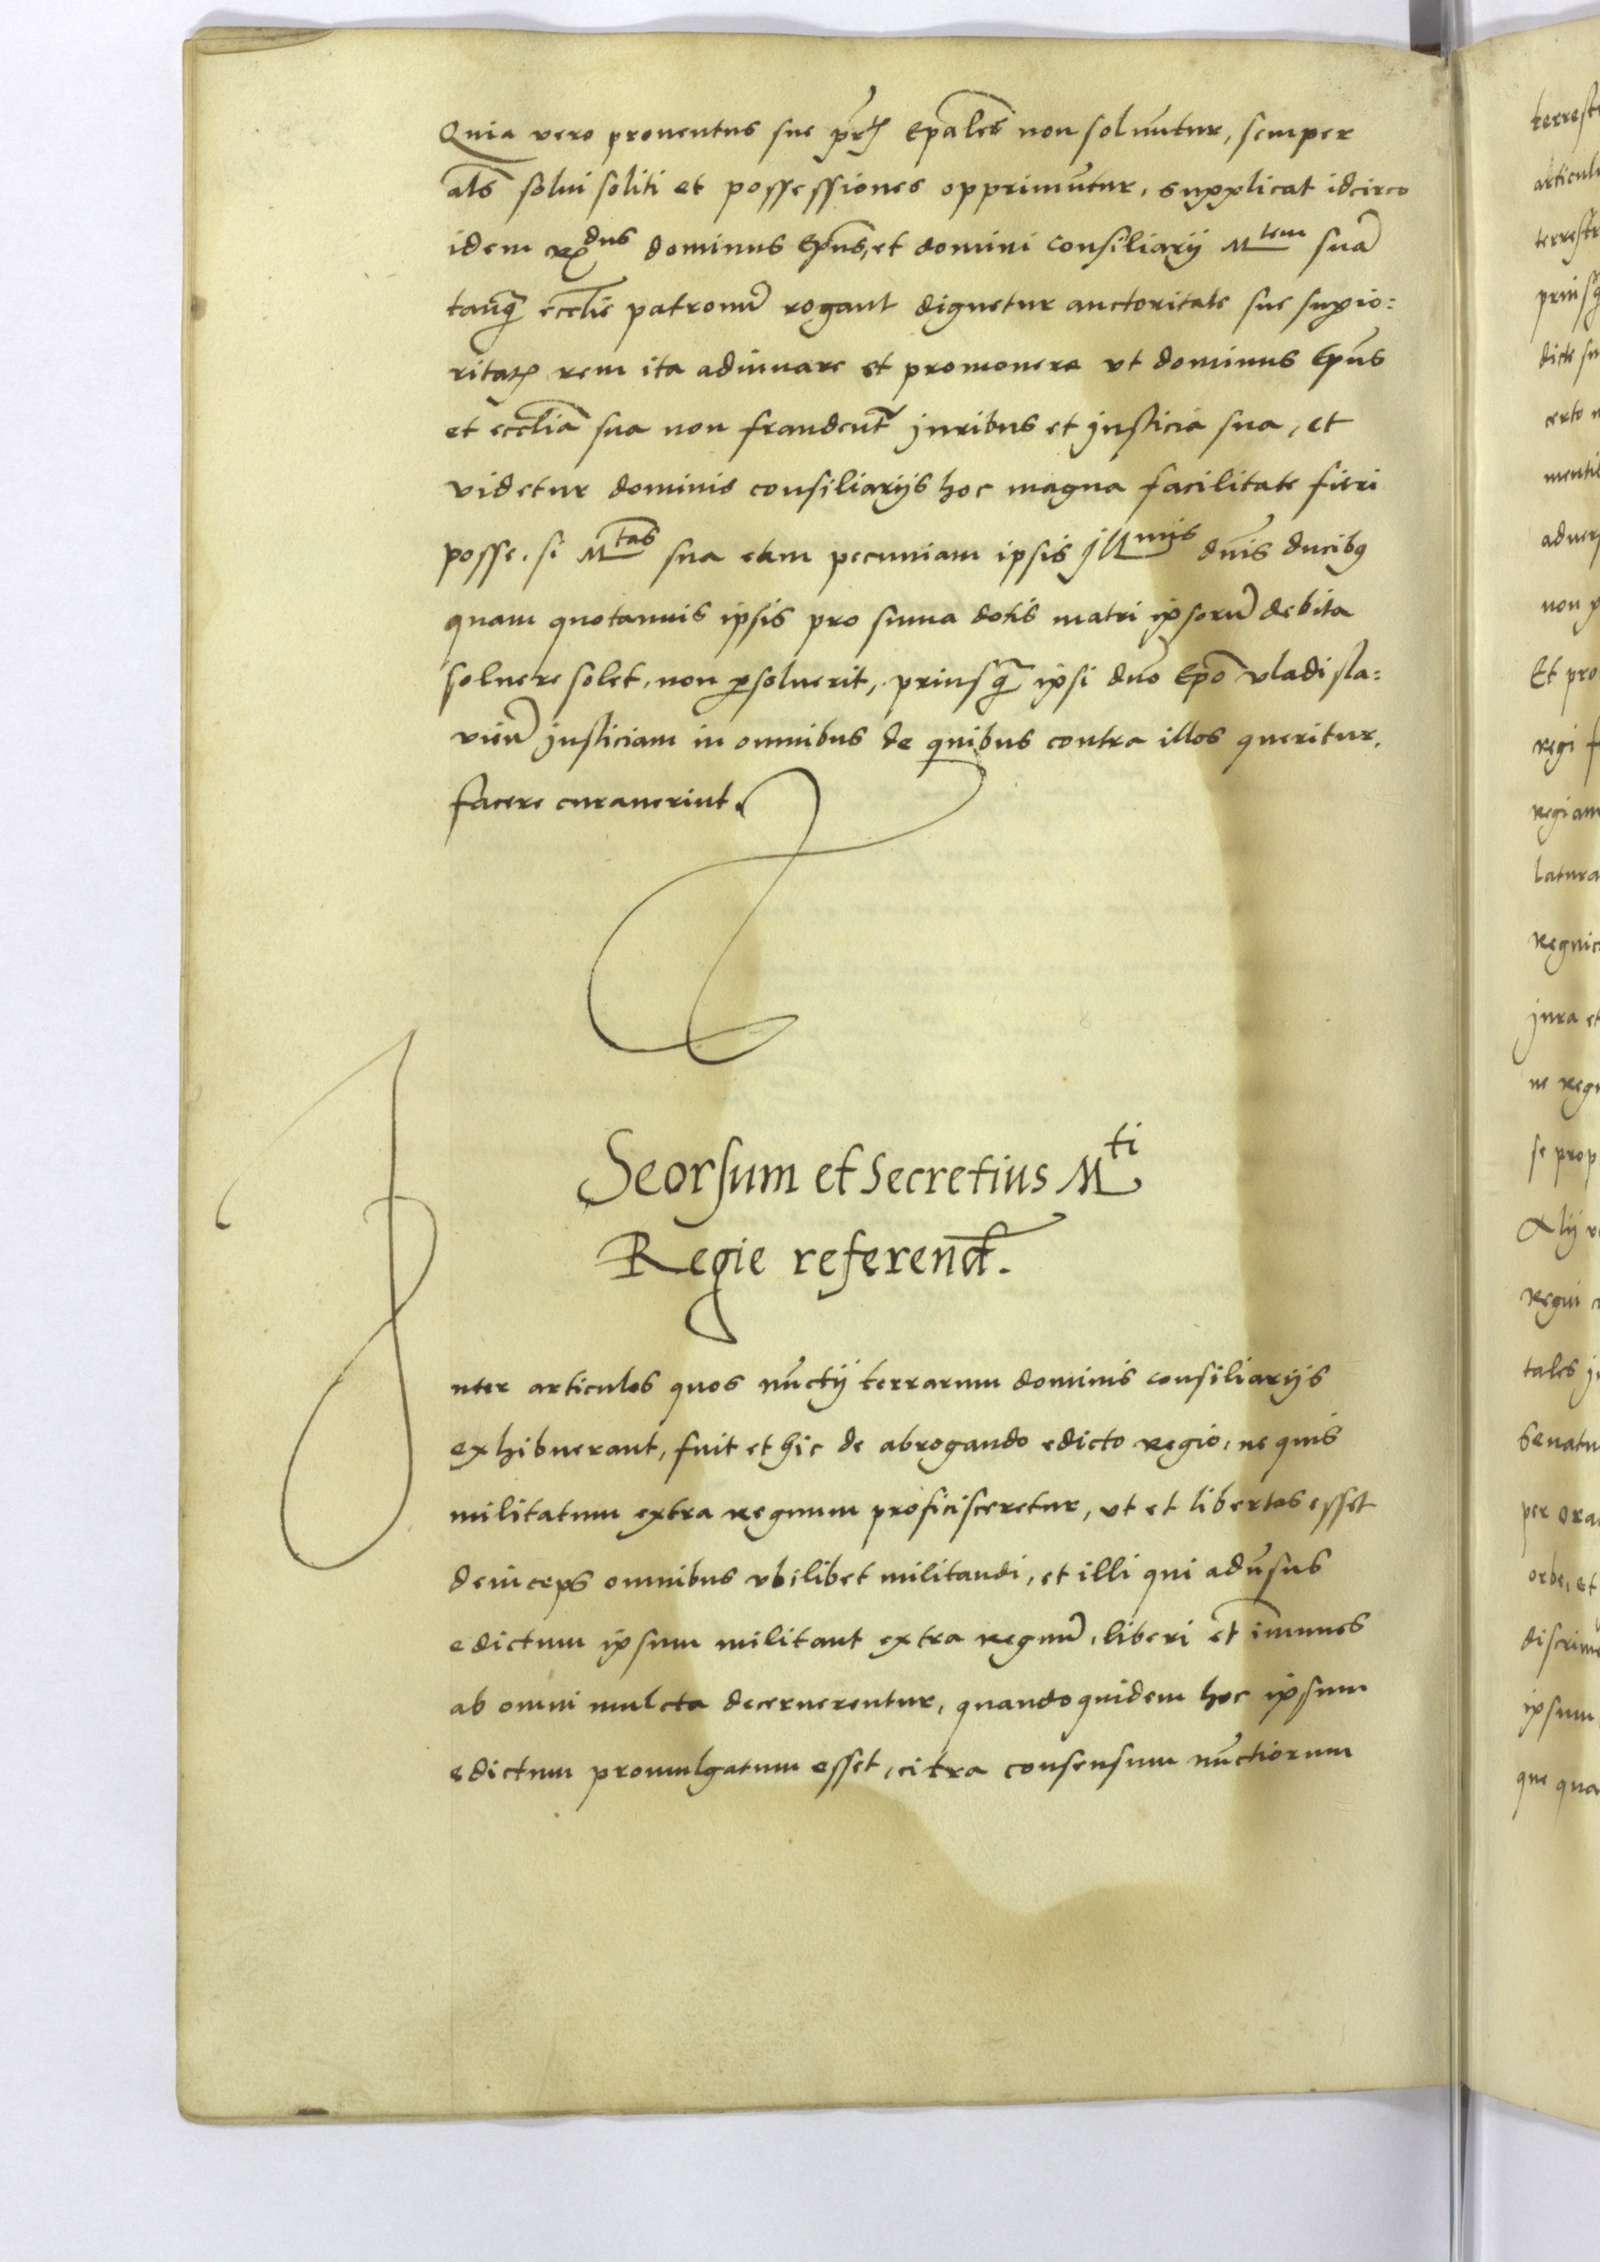 Quia vero proventus sue p̃rt̃ Ep̃ales non solvũtur, semper
al̃s solvi soliti et possessiones opprimũtur, supplicat idcirco
idem Rdus dominus Ep̃us, et domini Consiliarij Mtem suã
tanq̃ eccl̃ie patronũ rogant dignetur auctoritate sue supio:
ritat̃ rem ita adiuvare et promovere vt dominus Ep̃us
et eccl̃ia sua non fraudent̃ juribus et justicia sua, et
videtur dominis consiliarijs hoc magna facilitate fieri
posse. si Mtas sua eam pecuniam ipsis jllmis dñis ducibꝫ
quam quotannis ipsis pro suma dotis matri ipsorũ debita
solvere solet, non psolverit, priusq̃ ipsi dño Ep̃o vladisla:
vieñ justiciam in omnibus de quibus contra illos queritur,
facere curaverint.
Seorsum et Secretius Mti
Regie referend̃.
Jnter articulos quos nũctij terrarum dominis consiliarijs
exhibuerant, fuit et hic de abrogando edicto Regio, ne quis
militatum extra regnum proficisceretur, vt et libertas esset
deinceps omnibus vbilibet militandi, et illi qui adṽsus
edictum ipsum militant extra regnũ, liberi et im̃unes
ab omni mulcta decernerentur, quandoquidem hoc ipsum
edictum promulgatum esset, citra consensum nũctiorum